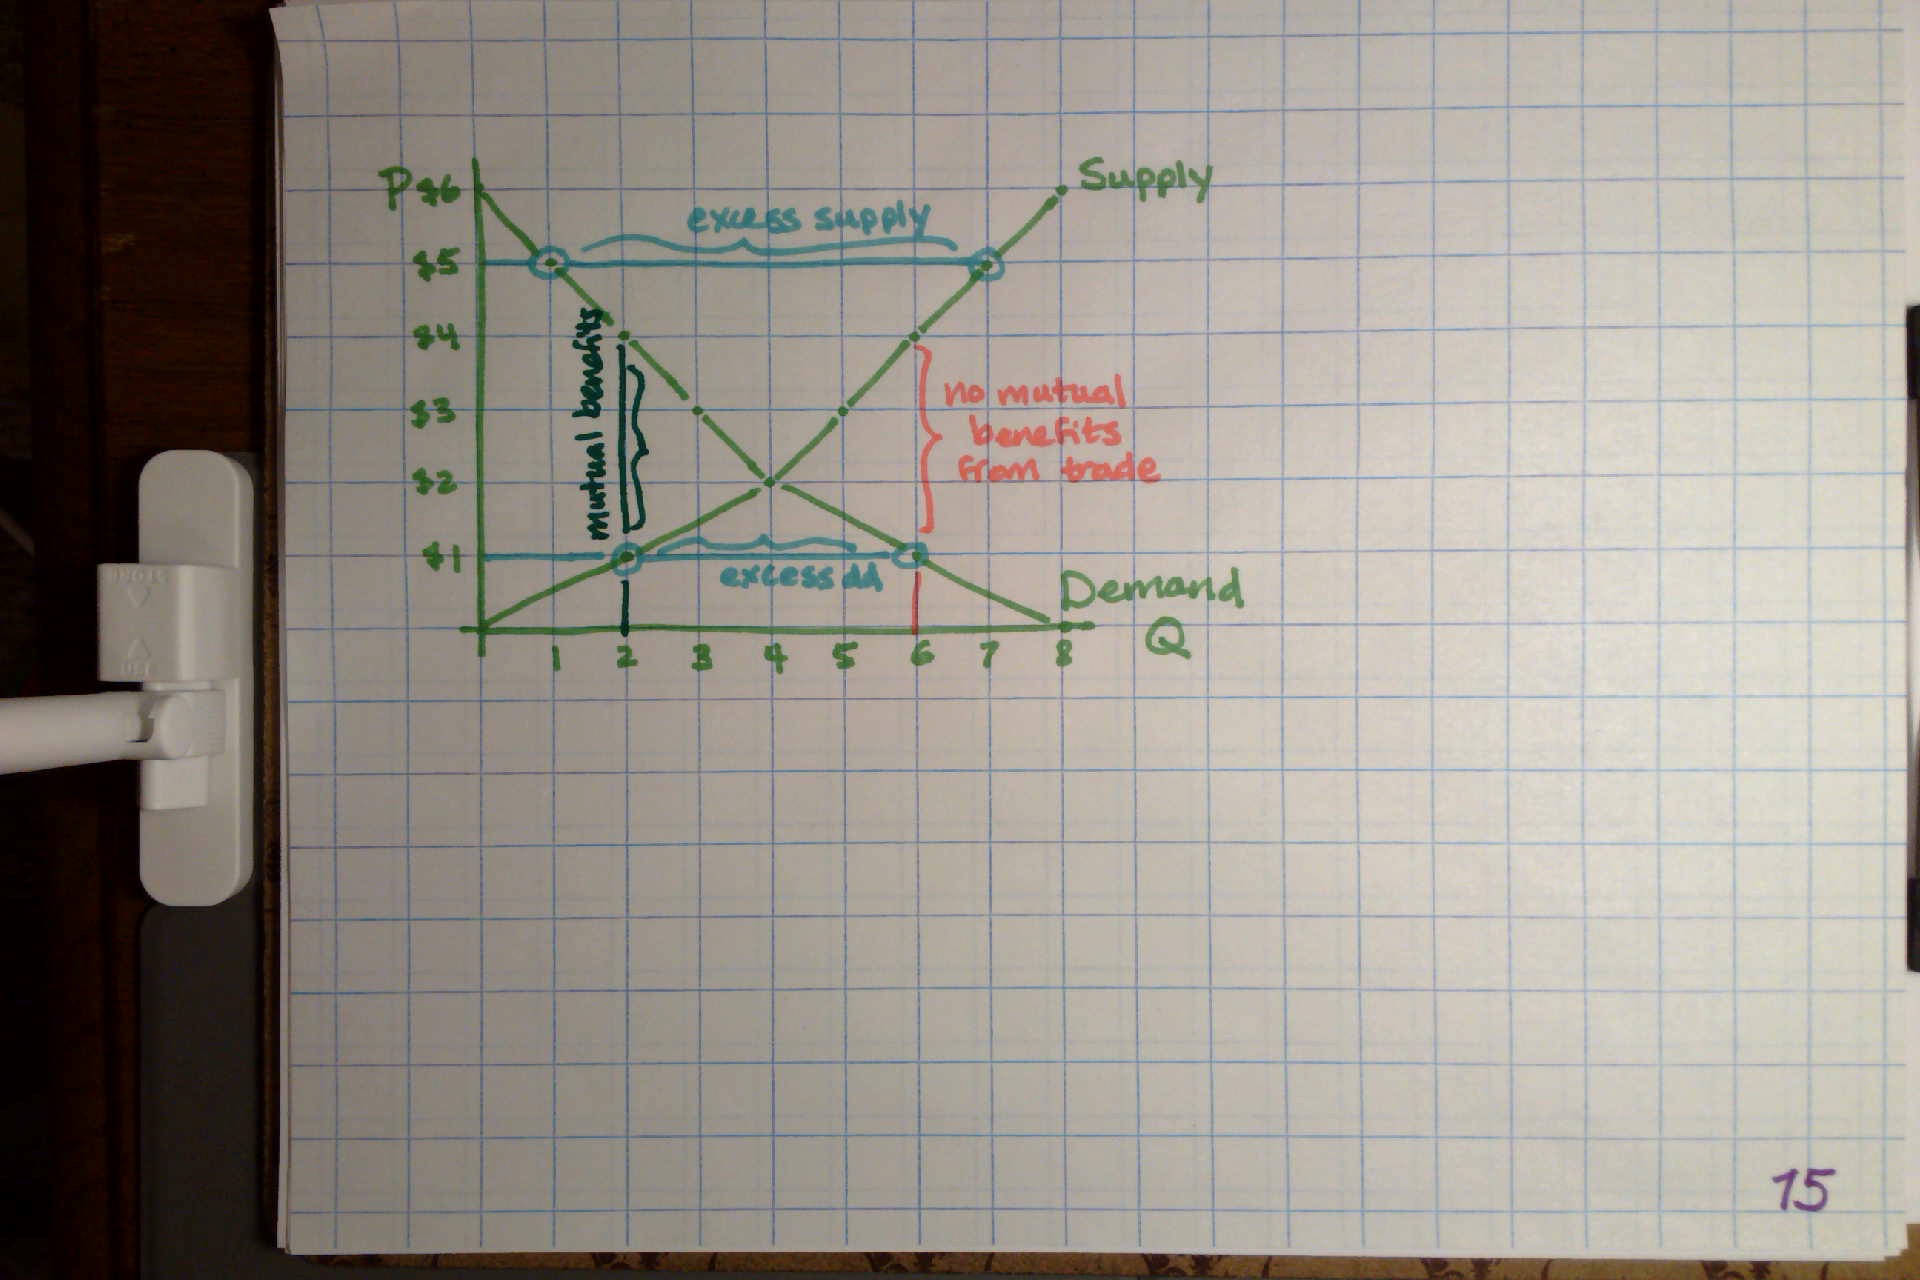 P $6
Supply
excess supply
$5
$4
mutual benefits
no mutual
benefits
from trade
$3
$2
$1
excess dd
Demand
Q
1 2 3 4 5 6 7 8
15